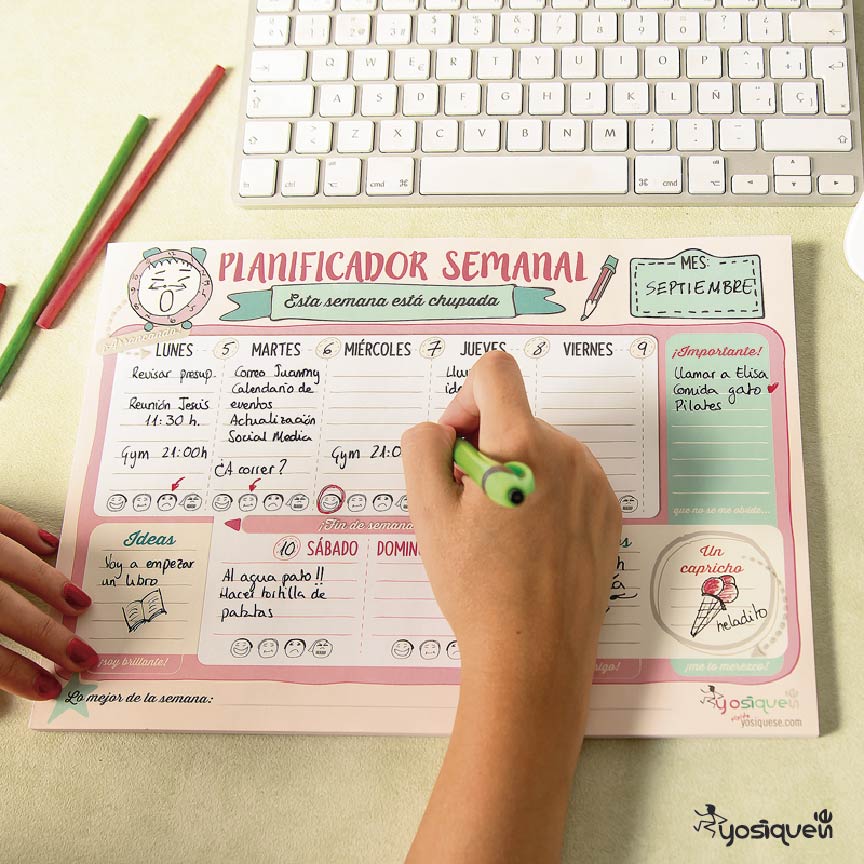 Q W E R T Y U I O P
A S D F G H J K L Ñ
Z X C V B N M
cmd
cmd
PLANIFICADOR SEMANAL
Esta semana está chupada
MES:
SEPTIEMBRE
LUNES 5
Revisar presup.
Reunión Jesús
11:30 h.
Gym 21:00h
MARTES 6
Correo Juanmy
Calendario de
eventos
Actualización
Social Medica
¿A correr?
MIÉRCOLES 7
Gym 21:0
JUEVES 8
VIERNES 9
¡Importante!
Llamar a Elisa
Comida gato
Pilates
que no se me olvide...
¡Fin de semana
Ideas
Voy a empezar
un libro
¡soy brillante!
10 SÁBADO
Al agua pato!!
Hacer tortilla de
patatas
DOMIN
Un
capricho
heladito
¡me lo merezco!
Lo mejor de la semana:
yosiquesé
yosiquese.com
yosiquesé